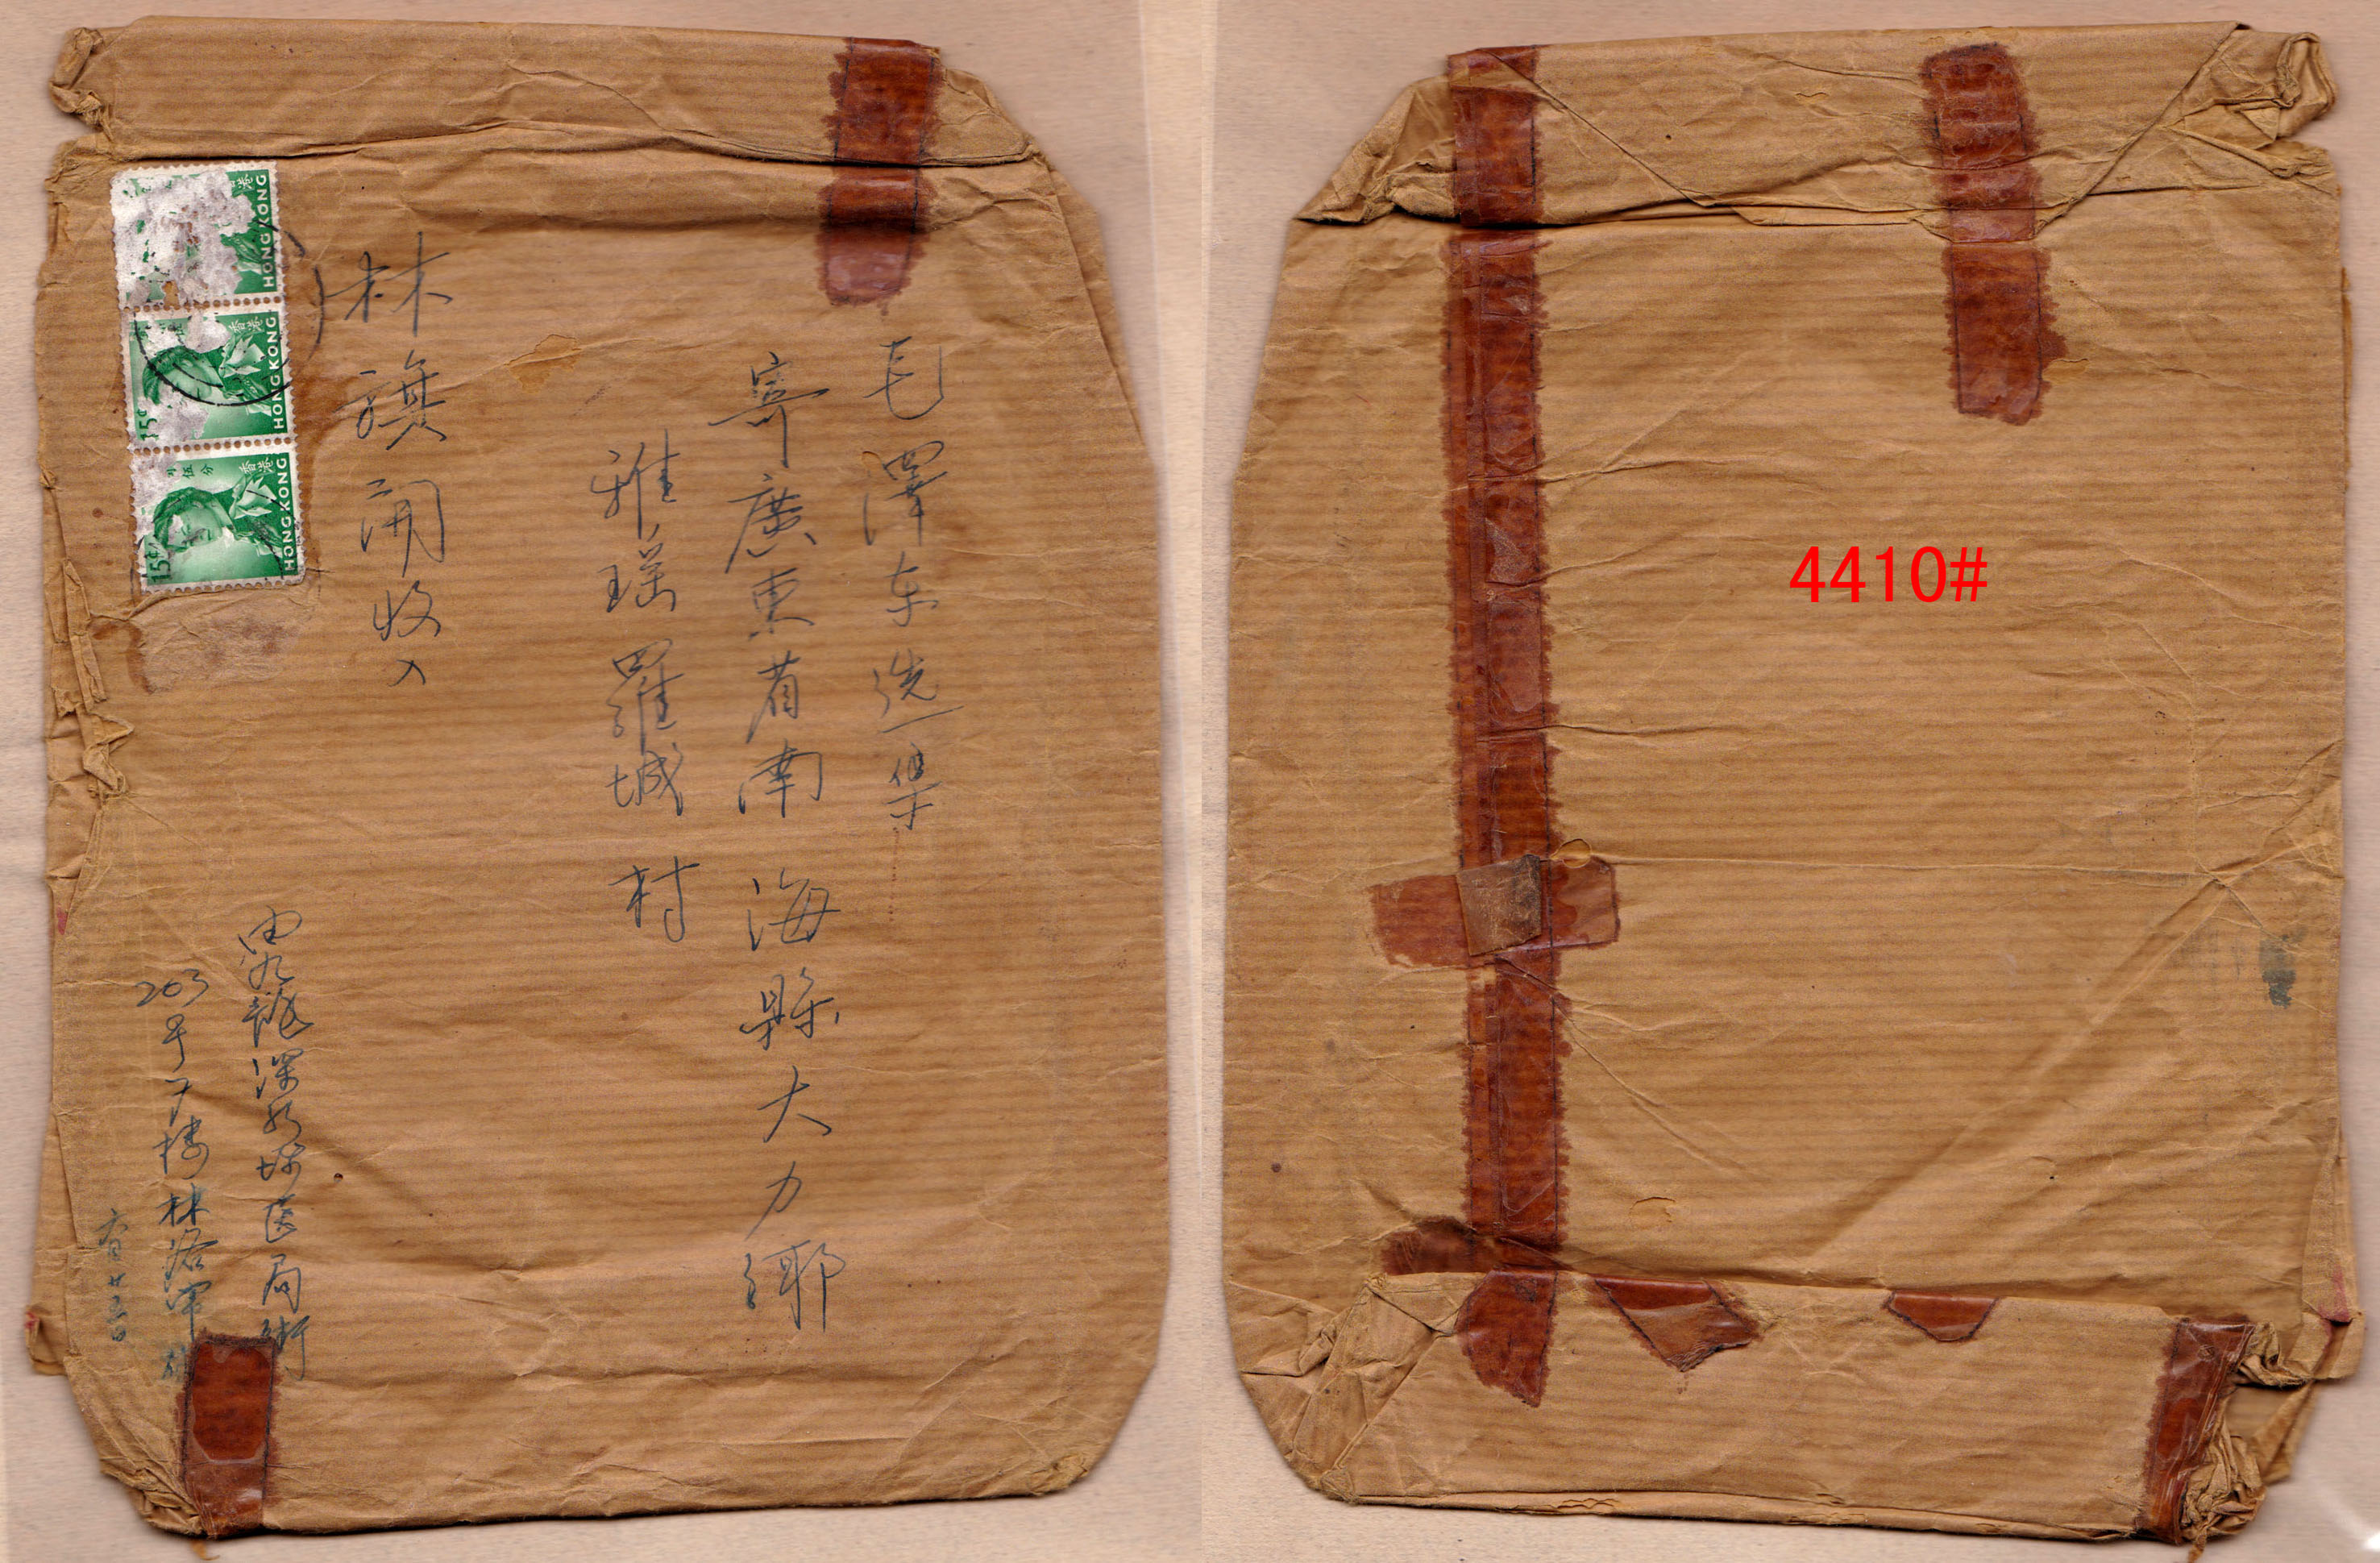 毛澤东选集
寄廣東省南海縣大力鄉
雅瑤羅城村
林旗開收入
由九龍深水埗医局街
203号7楼林洛軍
HONG KONG
香港
HONG KONG
香港
15¢
HONG KONG
香港
伍分
15¢
4410#